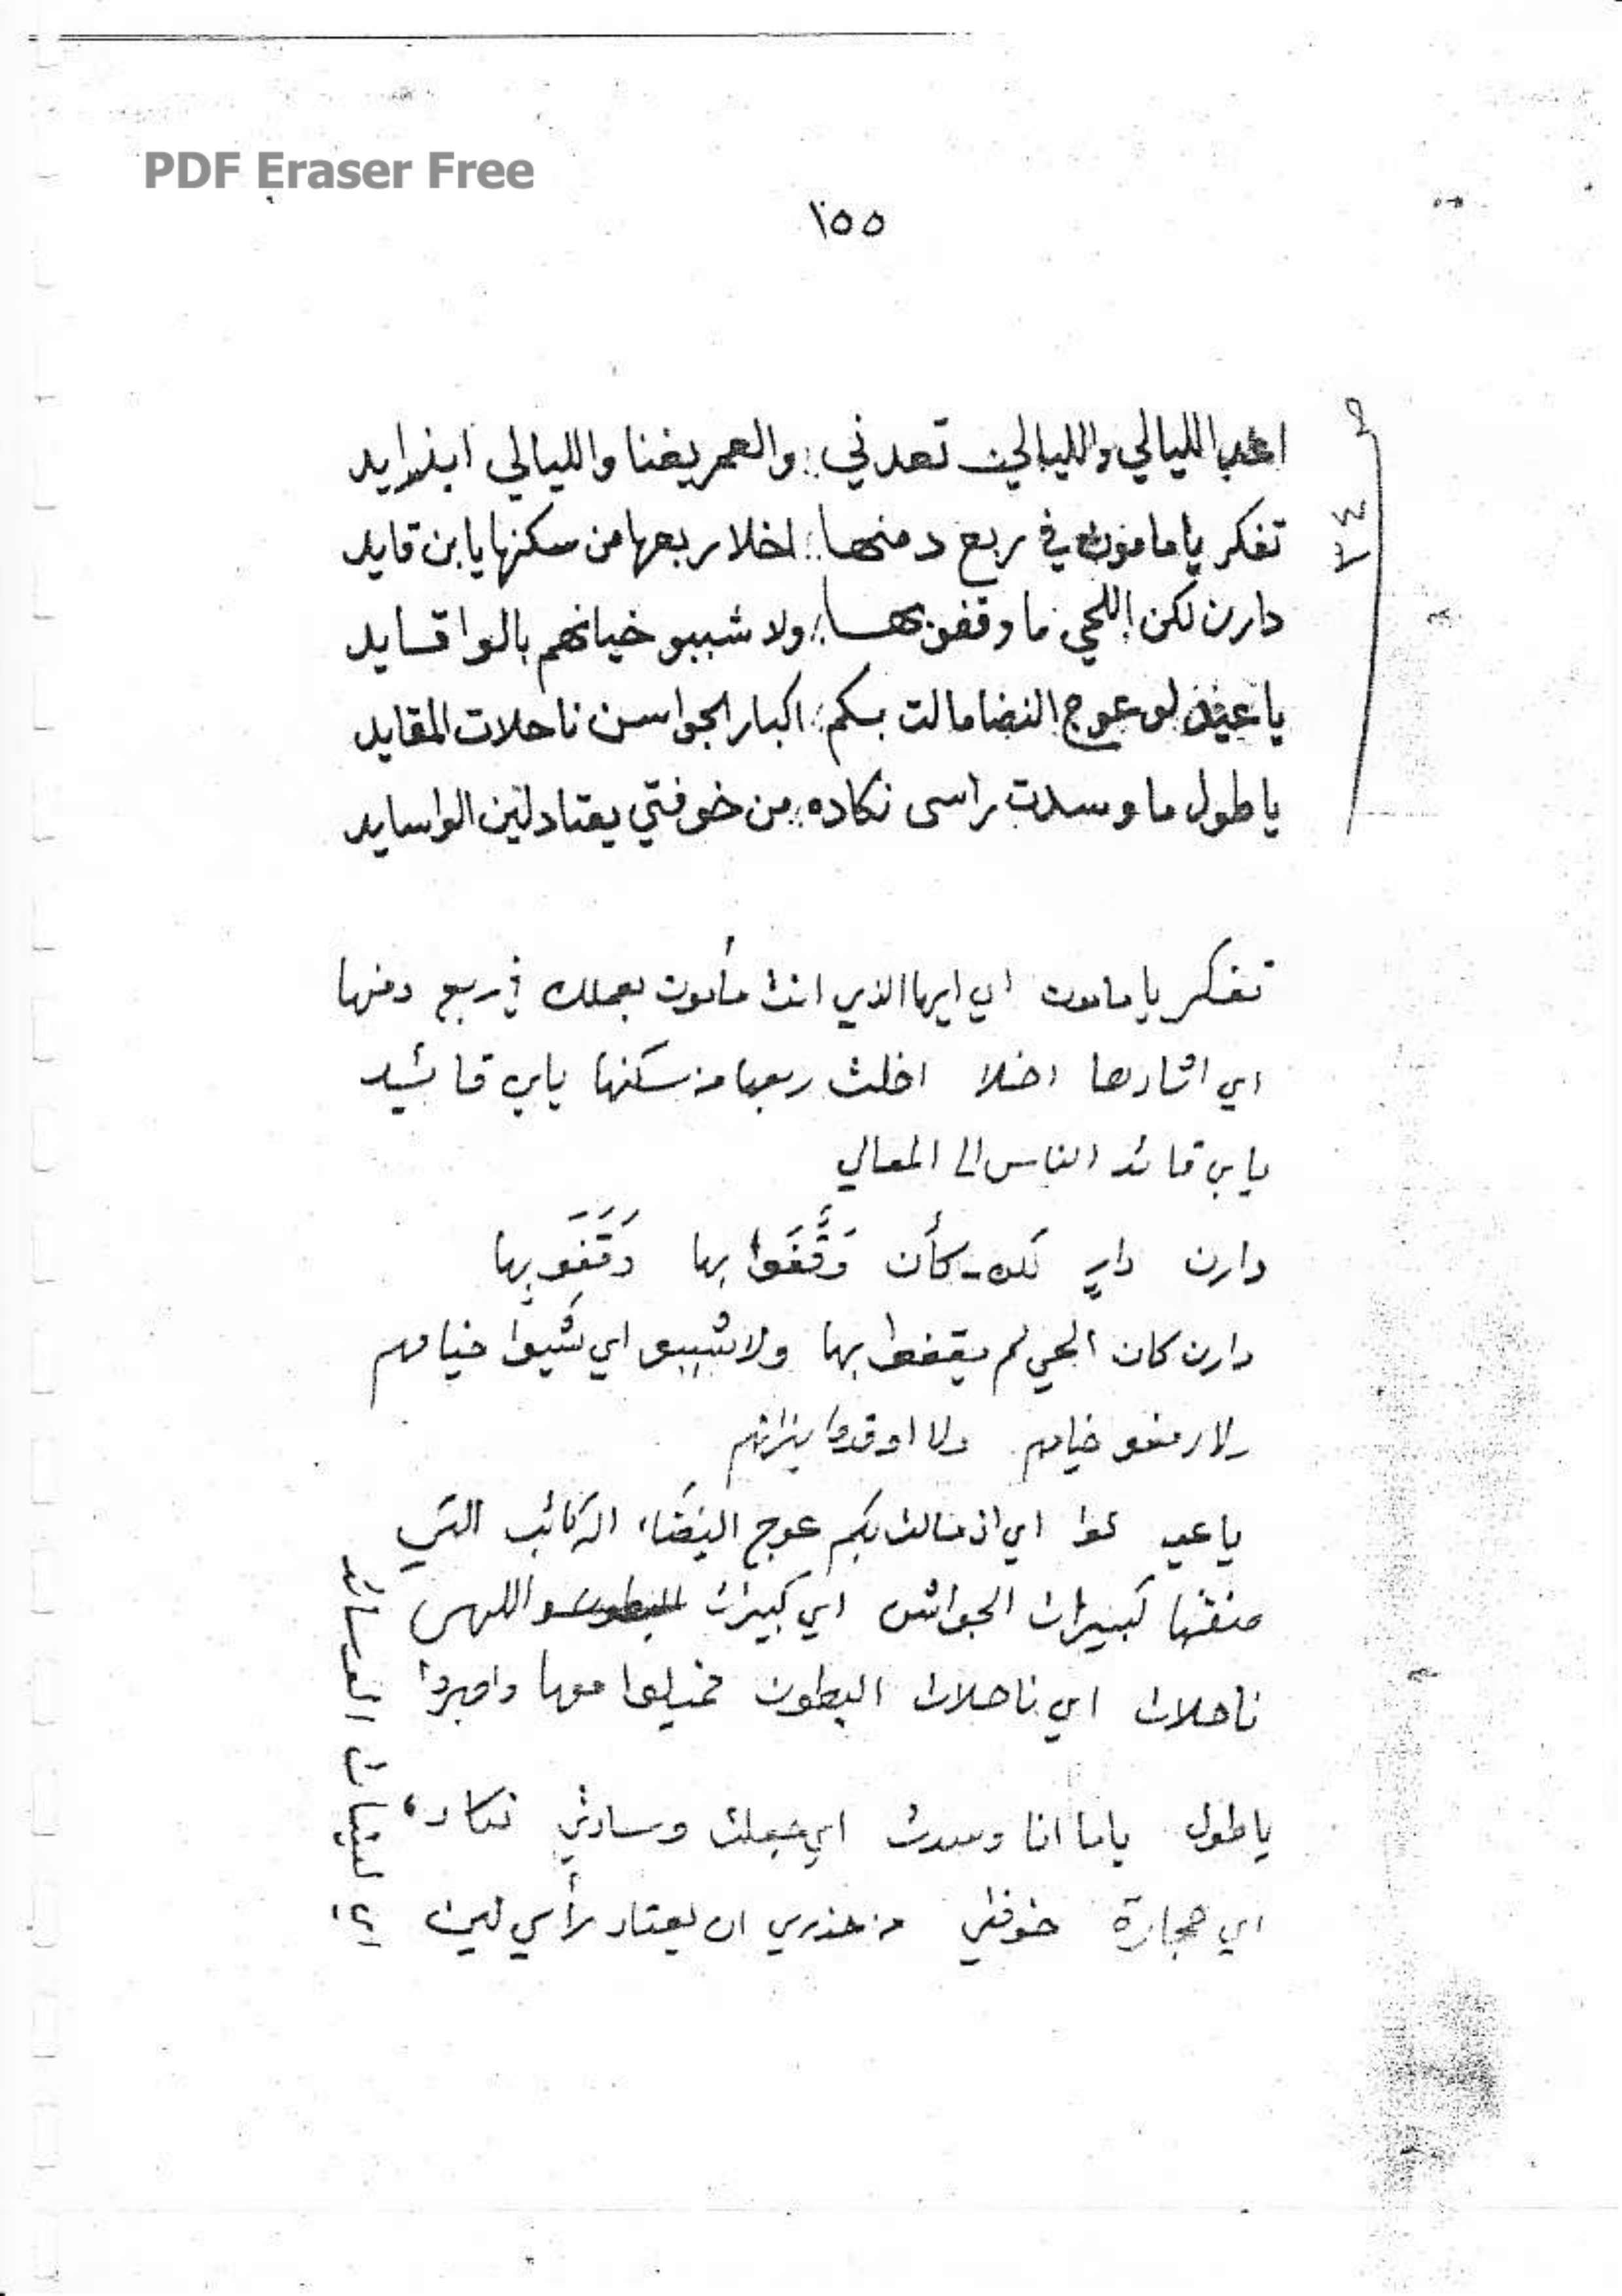 PDF Eraser Free
١٥٥
اعد الليالي والليالي تعدني : والعمر يفنا والليالي ابزايد
تفكر يا مامون في ربع دمنها : اخلا ربعها من سكنها يابن قايد
دارن لكن اللحي ما وقفو بها : ولا شببو خيامهم بالوا قايد
يا عيد لو عوج النضا مالت بكم : اكبار الجواسن ناحلات المقايد
يا طول ما وسدت راسى نكاده : من خوفتي يعتاد لين الوسايد
٣٤
تفكر يا مامون اي ايها الذي انت مأمون بعملك في ربع دمنها
اي اثارها اخلا اخلت ربعها من سكنها يابن قائيد
يا بن قائد الناس الى المعالي
دارن دارٍ لكن - كأن وَقَّفَوا بها وَقَفَو بها
دارن كان الحي لم يقفوا بها ولا شببو اي شيبوا خيامهم
ولا رفعو خيامهم ولا اوقدوا نيرانهم
يا عيد اي ان مالت بكم عوج النضاء الركائب التي
صفتها كبيرات الجواشن اي كبيرات
ناحلات اي ناحلات البطون فميلوا معها واصبروا
يا طول ياما انا وسدت اي جعلت وسادتي نكاد
اي حجارة خوفتي من حذري ان يعتاد رأسي لين